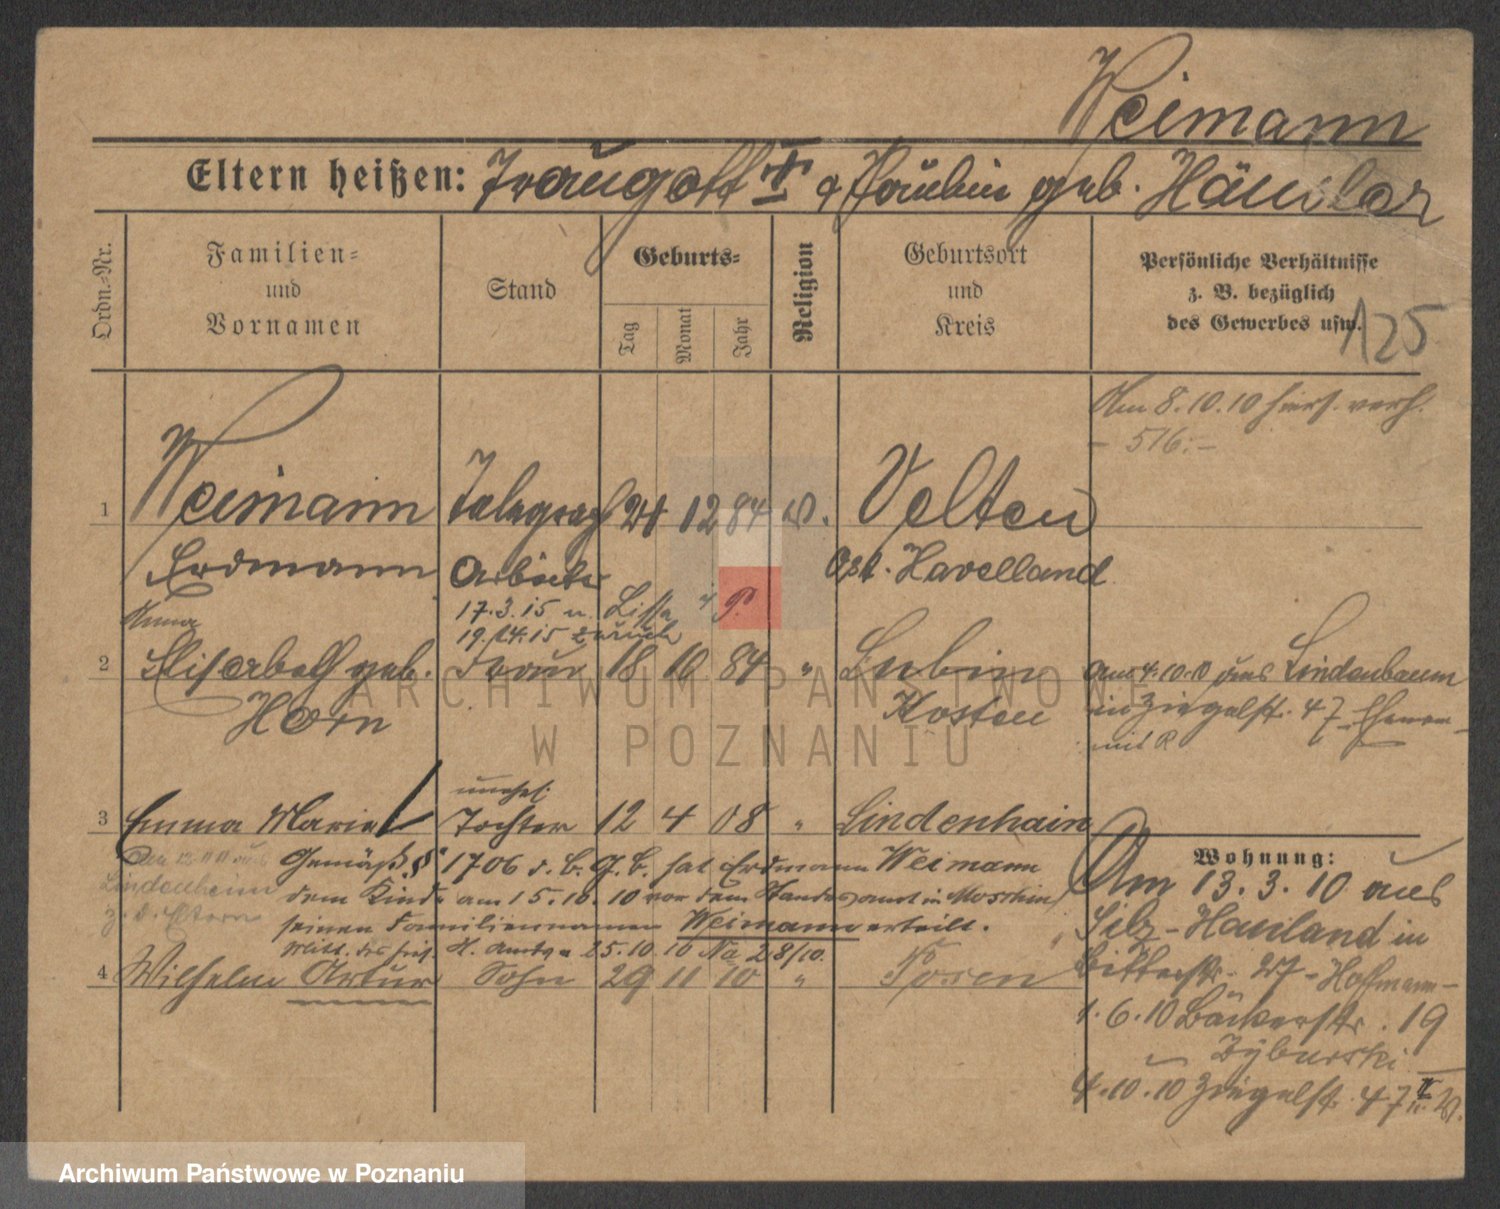 Weimann
Eltern heißen: Traugott † u Paulin geb. Häusler
Ordn.=Nr.
Familien=
und
Vornamen
Stand
Geburts=
Tag
Monat
Jahr
Religion
Geburtsort
und
Kreis
Persönliche Verhältnisse
z. B. bezüglich
des Gewerbes usw.
125
Am 8.10.10 hiers. verh.
– 516. –
1 Weimann Telegraph 12 84 Velten
Erdmann Arbeiter Havelland
17.3.15 n. Lissa
19. 15 zurück
Anna
2 Elisabeth geb. Frau 18 10 84 " Lubin
Horn Kosten
am 4.10.10 aus Lindenbaum
in Ziegelstr. 47
mit
3 Emma Marie unehel. Tochter 12 4 08 " Lindenhain
Gemäß § 1706 d. B. G. B. hat Erdmann Weimann
dem Kinde am 15.10.10 vor dem Standesamt in Moschin
seinen Familiennamen Weimann erteilt.
25.10.10 No 28/10.
aus
Lindenheim
z. d. Eltern
4 Wilhelm Artur Sohn 29 11 10 " Posen
Wohnung:
Am 13.3.10 aus
Hauland in
27 – Hoffmann –
1.6.10 Bäckerstr. 19
Zyburski
4.10.10 Ziegelstr. 47 II W.
ARCHIWUM PAŃSTWOWE
W POZNANIU
Archiwum Państwowe w Poznaniu